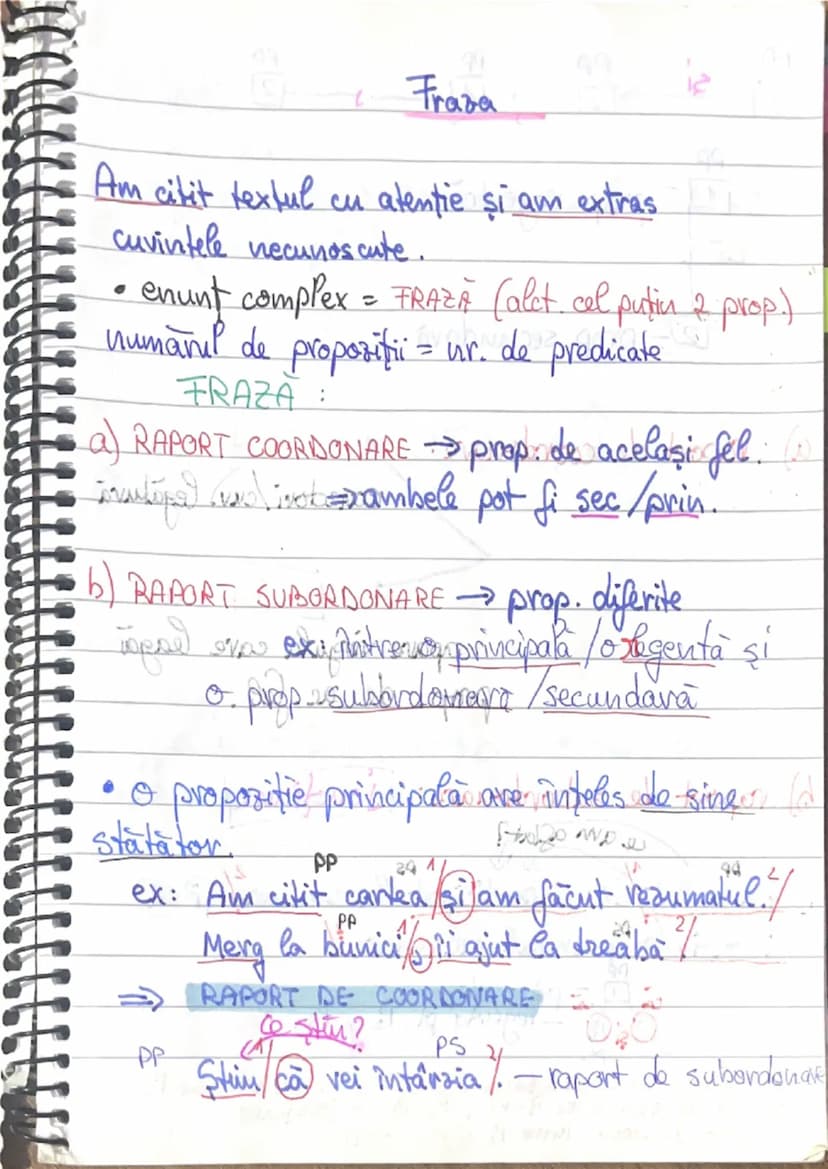 Fraza
Am citit textul cu atenție și am extras
cuvintele necunoscute.
• enunț complex = FRAZĂ (alct. cel puțin 2 prop.)
numărul de propoziții = nr. de predicate
FRAZĂ :
a) RAPORT COORDONARE → prop. de același fel.
⇒ ambele pot fi sec/prin.
b) RAPORT SUBORDONARE → prop. diferite
ex: între o principală / o regentă și
o prop. subordonată / secundară
• o propoziție principală are înțeles de sine
stătător.
PP
ex: Am citit cartea 1/ și am făcut rezumatul. 2/
PP
Merg la bunici 1/, îi ajut la treabă 2/.
⇒ RAPORT DE COORDONARE
Ce știu?
PP PS
Știu 1/ că vei întârzia 2/. – raport de subordonare